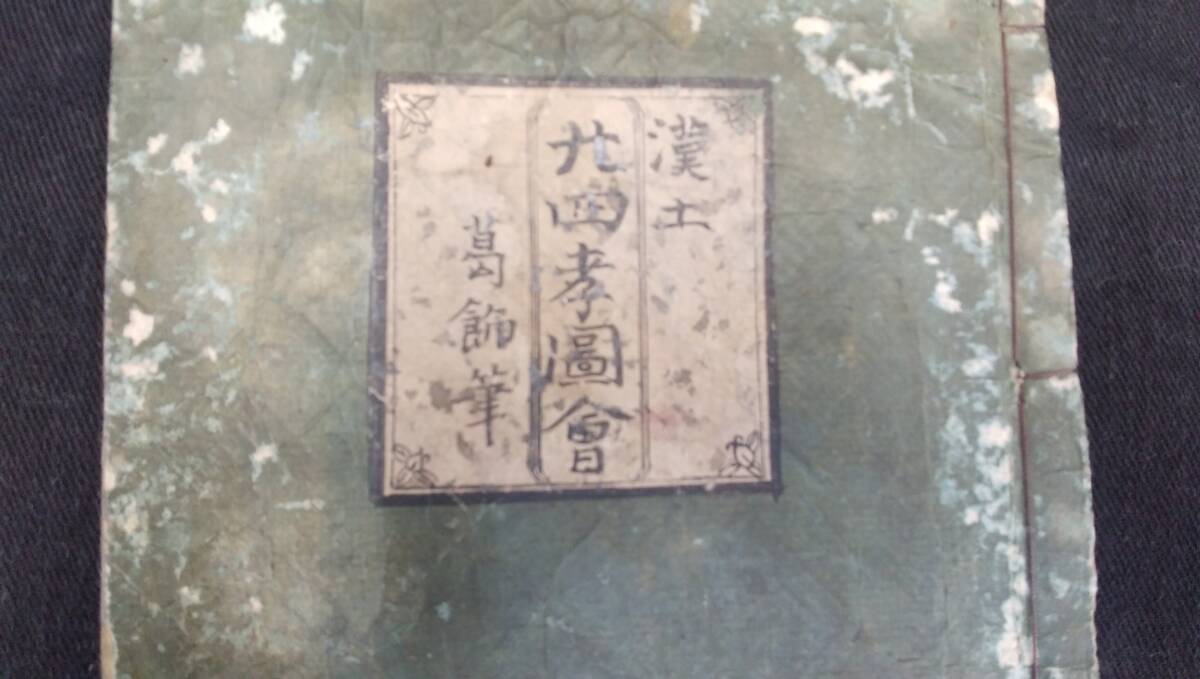 漢土
廿四孝圖會
葛飾筆